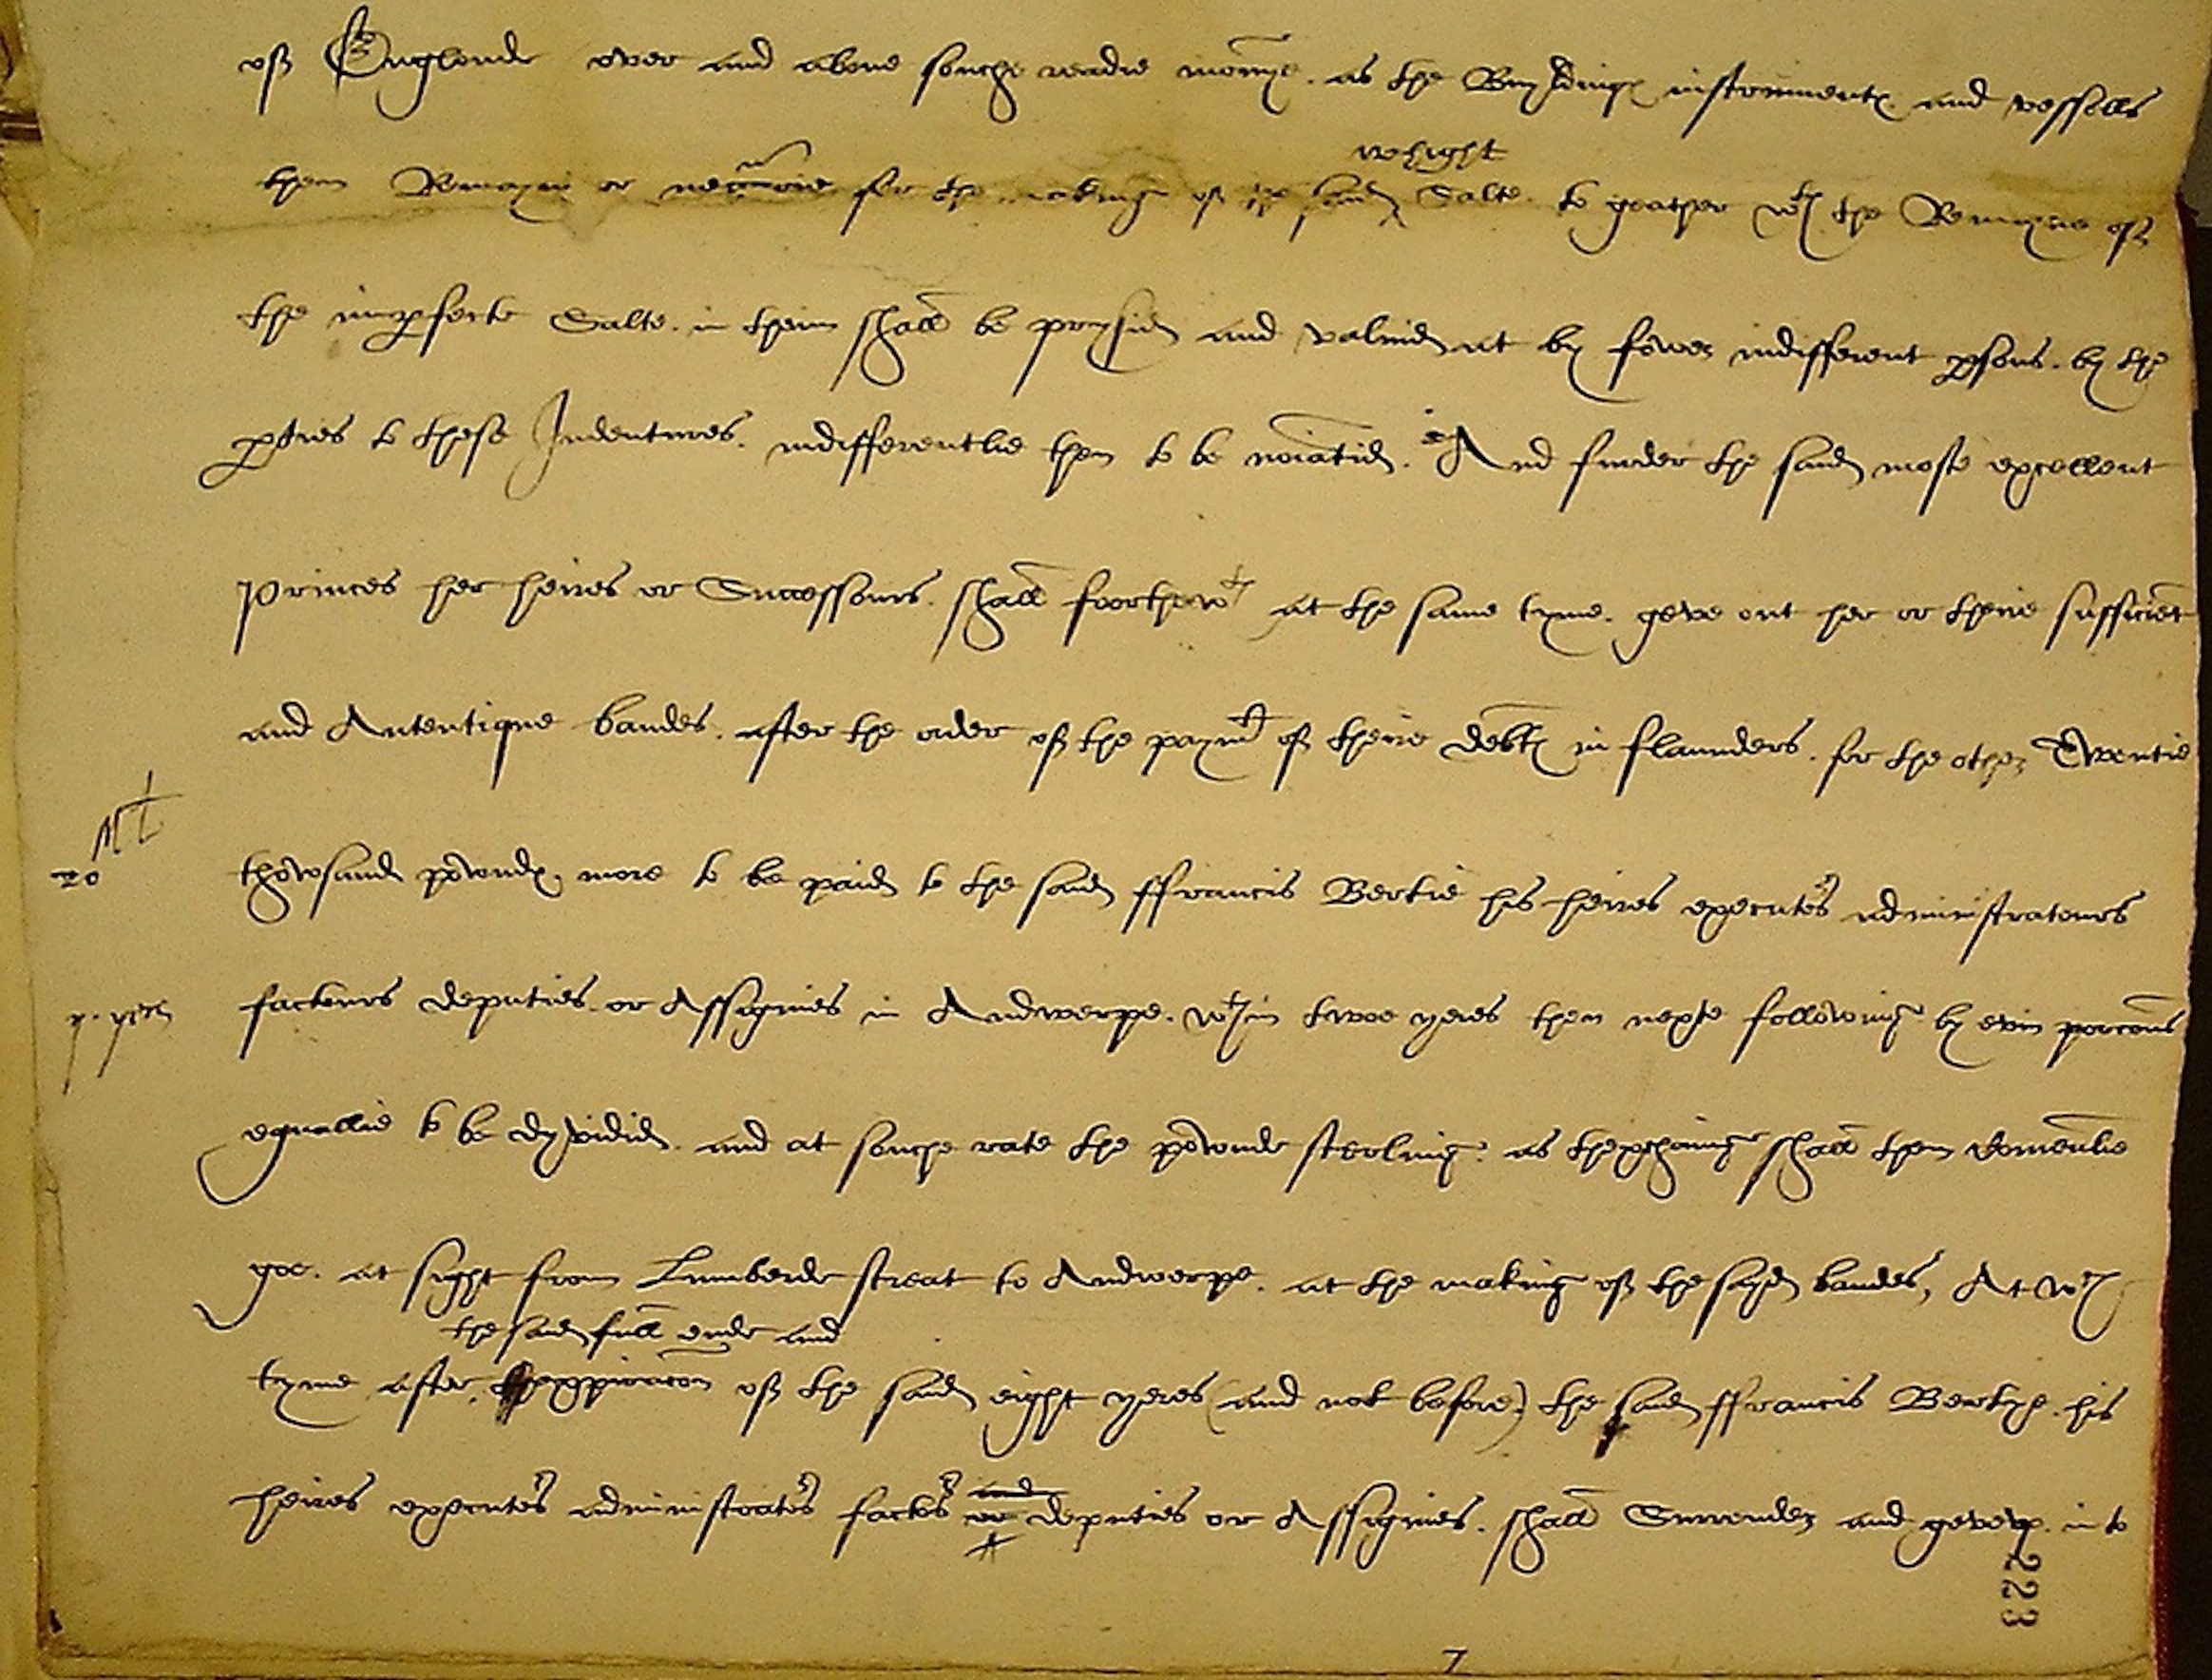 of Englonde over and above souche readie monye. as the Buyldingꝭ instrumentꝭ and vessells
then Remayni or for the making of the said Salte. to geather wth the Remayne of
whight
the imꝑfecte Salte. in theim shall be praysid and valuid at by fower indifferent ꝑsons. by the
ꝑties to these Indentures. indifferentlie then to be noiatid. And furder the said moste excellent
Princes her heires or Successours. shall foorthewt at the same tyme. geve out her or theire sufficiet
and Autentique bandes. after the order of the paymt of theire debtꝭ in flaunders. for the other Twentie
Mt
20
thowsand powndꝭ, more to be paid to the said ffrancis Bertie his heires executors administratours
facteurs deputies. or Assignies in Andwerpe. wtin twoe yeres then nexte following by evin porcons
equallie to be dyvidid. and at souche rate the pownde sterling. as thexchaung shall then comenlie
goe. at sight from Lumberde streat to Andwerpe. at the making of the sayd bandes, At wch
the said full ende and
tyme after. thexpiracon of the said eight yeres (and not before) the said ffrancis Bertye. his
heires executors administrators factors and or deputies or Assignies. shall Surrender and geve up. into
223
7